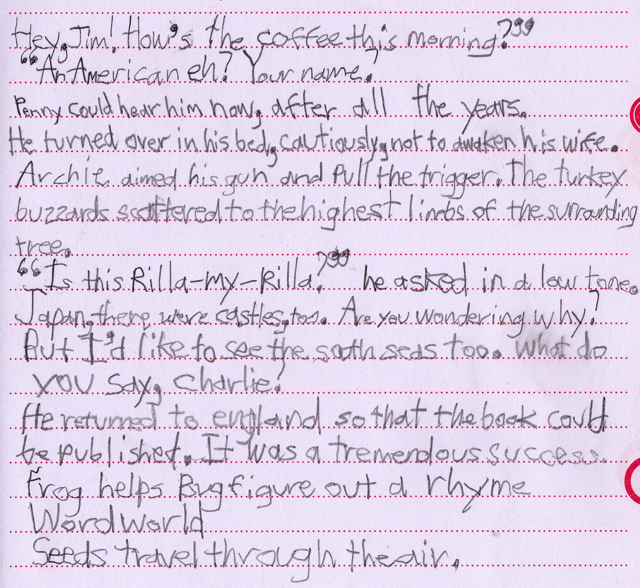 Hey, Jim! How's the coffee this morning?"
"An American eh? Your name?
Penny could hear him now, after all the years.
He turned over in his bed, cautiously, not to awaken his wife.
Archie aimed his gun and pull the trigger. The turkey
buzzards scattered to the highest limbs of the surrounding
tree.
"Is this Rilla-my-Rilla?" he asked in a low tone.
Japan, there were castles, too. Are you wondering why?
But I'd like to see the south seas too. What do
you say, Charlie?
He returned to england so that the book could
be published. It was a tremendous success.
Frog helps Bug figure out a rhyme
Wordworld
Seeds travel through the air.